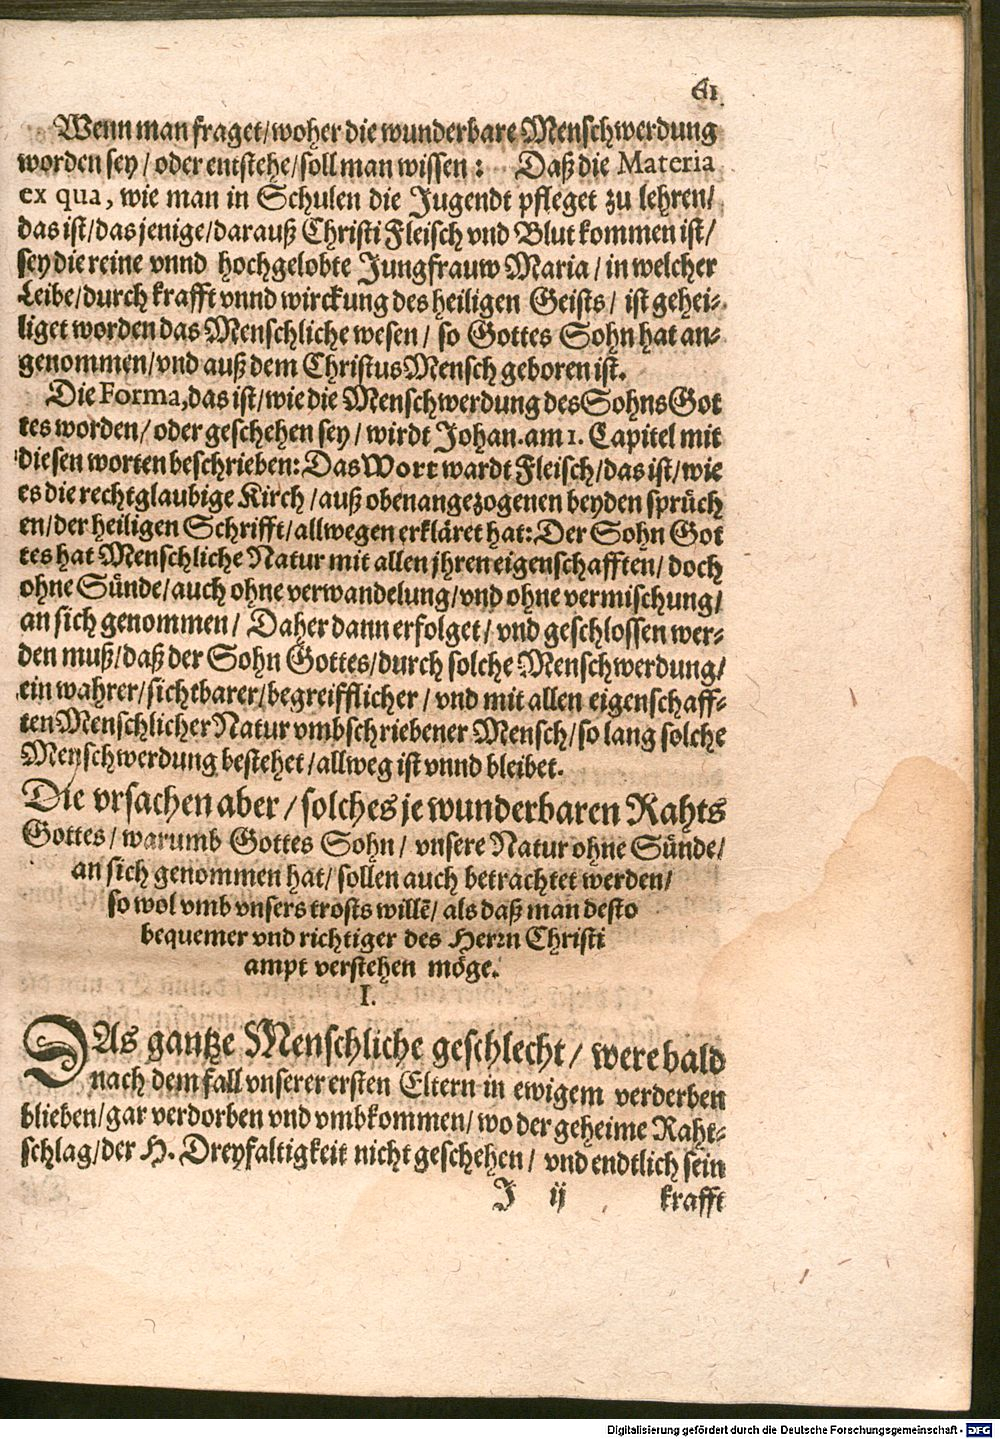 61
Wenn man fraget/woher die wunderbare Menschwerdung
worden sey/ oder entstehe/soll man wissen: Daß die Materia
ex qua, wie man in Schulen die Jugendt pfleget zu lehren/
das ist/das jenige/darauß Christi Fleisch vnd Blut kommen ist/
sey die reine vnnd hochgelobte Jungfrauw Maria/ in welcher
Leibe/durch krafft vnnd wirckung des heiligen Geists/ ist gehei-
liget worden das Menschliche wesen/ so Gottes Sohn hat an-
genommen/vnd auß dem Christus Mensch geboren ist.
Die Forma, das ist/wie die Menschwerdung des Sohns Got
tes worden/ oder geschehen sey/ wirdt Johan. am 1. Capitel mit
diesen worten beschrieben: Das Wort wardt Fleisch/das ist/wie
es die rechtglaubige Kirch/auß obenangezogenen beyden sprüch
en/der heiligen Schrifft/allwegen erkläret hat: Der Sohn Got
tes hat Menschliche Natur mit allen jhren eigenschafften/ doch
ohne Sünde/auch ohne verwandelung/vnd ohne vermischung/
an sich genommen/ Daher dann erfolget/ vnd geschlossen wer-
den muß/daß der Sohn Gottes/durch solche Menschwerdung/
ein wahrer/sichtbarer/begreifflicher/ vnd mit allen eigenschaff-
ten Menschlicher Natur vmbschriebener Mensch/so lang solche
Menschwerdung bestehet/allweg ist vnnd bleibet.
Die vrsachen aber/ solches je wunderbaren Rahts
Gottes/ warumb Gottes Sohn/ vnsere Natur ohne Sünde/
an sich genommen hat/ sollen auch betrachtet werden/
so wol vmb vnsers trosts willẽ/ als daß man desto
bequemer vnd richtiger des Herrn Christi
ampt verstehen möge.
I.
DAs gantze Menschliche geschlecht/ were bald
nach dem fall vnserer ersten Eltern in ewigem verderben
blieben/gar verdorben vnd vmbkommen/ wo der geheime Raht-
schlag/der H. Dreyfaltigkeit nicht geschehen/ vnd endtlich sein
J ij krafft
Digitalisierung gefördert durch die Deutsche Forschungsgemeinschaft - DFG